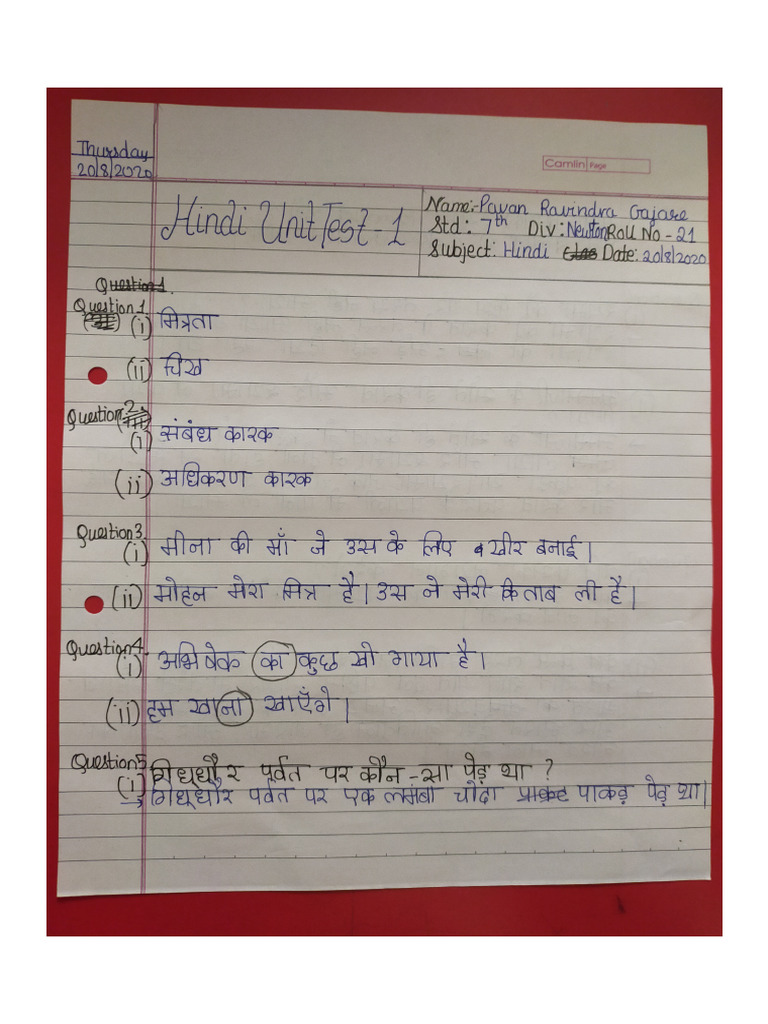 Thursday
20/8/2020
Camlin Page
Hindi Unit Test-1
Name:- Pavan Ravindra Gajare
Std: 7th Div: Newton Roll No - 21
Subject: Hindi Date: 20/8/2020
Question 1.
Question 1.
(i) मित्रता
(ii) चिख
Question 2.
(i) संबंध कारक
(ii) अधिकरण कारक
Question 3.
(i) मीना की माँ जे उस के लिए खीर बनाई।
(ii) मोहन मेरा मित्र है। उस ने मेरी किताब ली है।
Question 4.
(i) अभिषेक का कुछ खो गाया है।
(ii) हम खाना खाएँगे।
Question 5
(i) गिध्धौर पर्वत पर कौन-सा पेड़ था?
→ गिध्धौर पर्वत पर एक लमंबा चोदा पाकड़ पेड़ था।